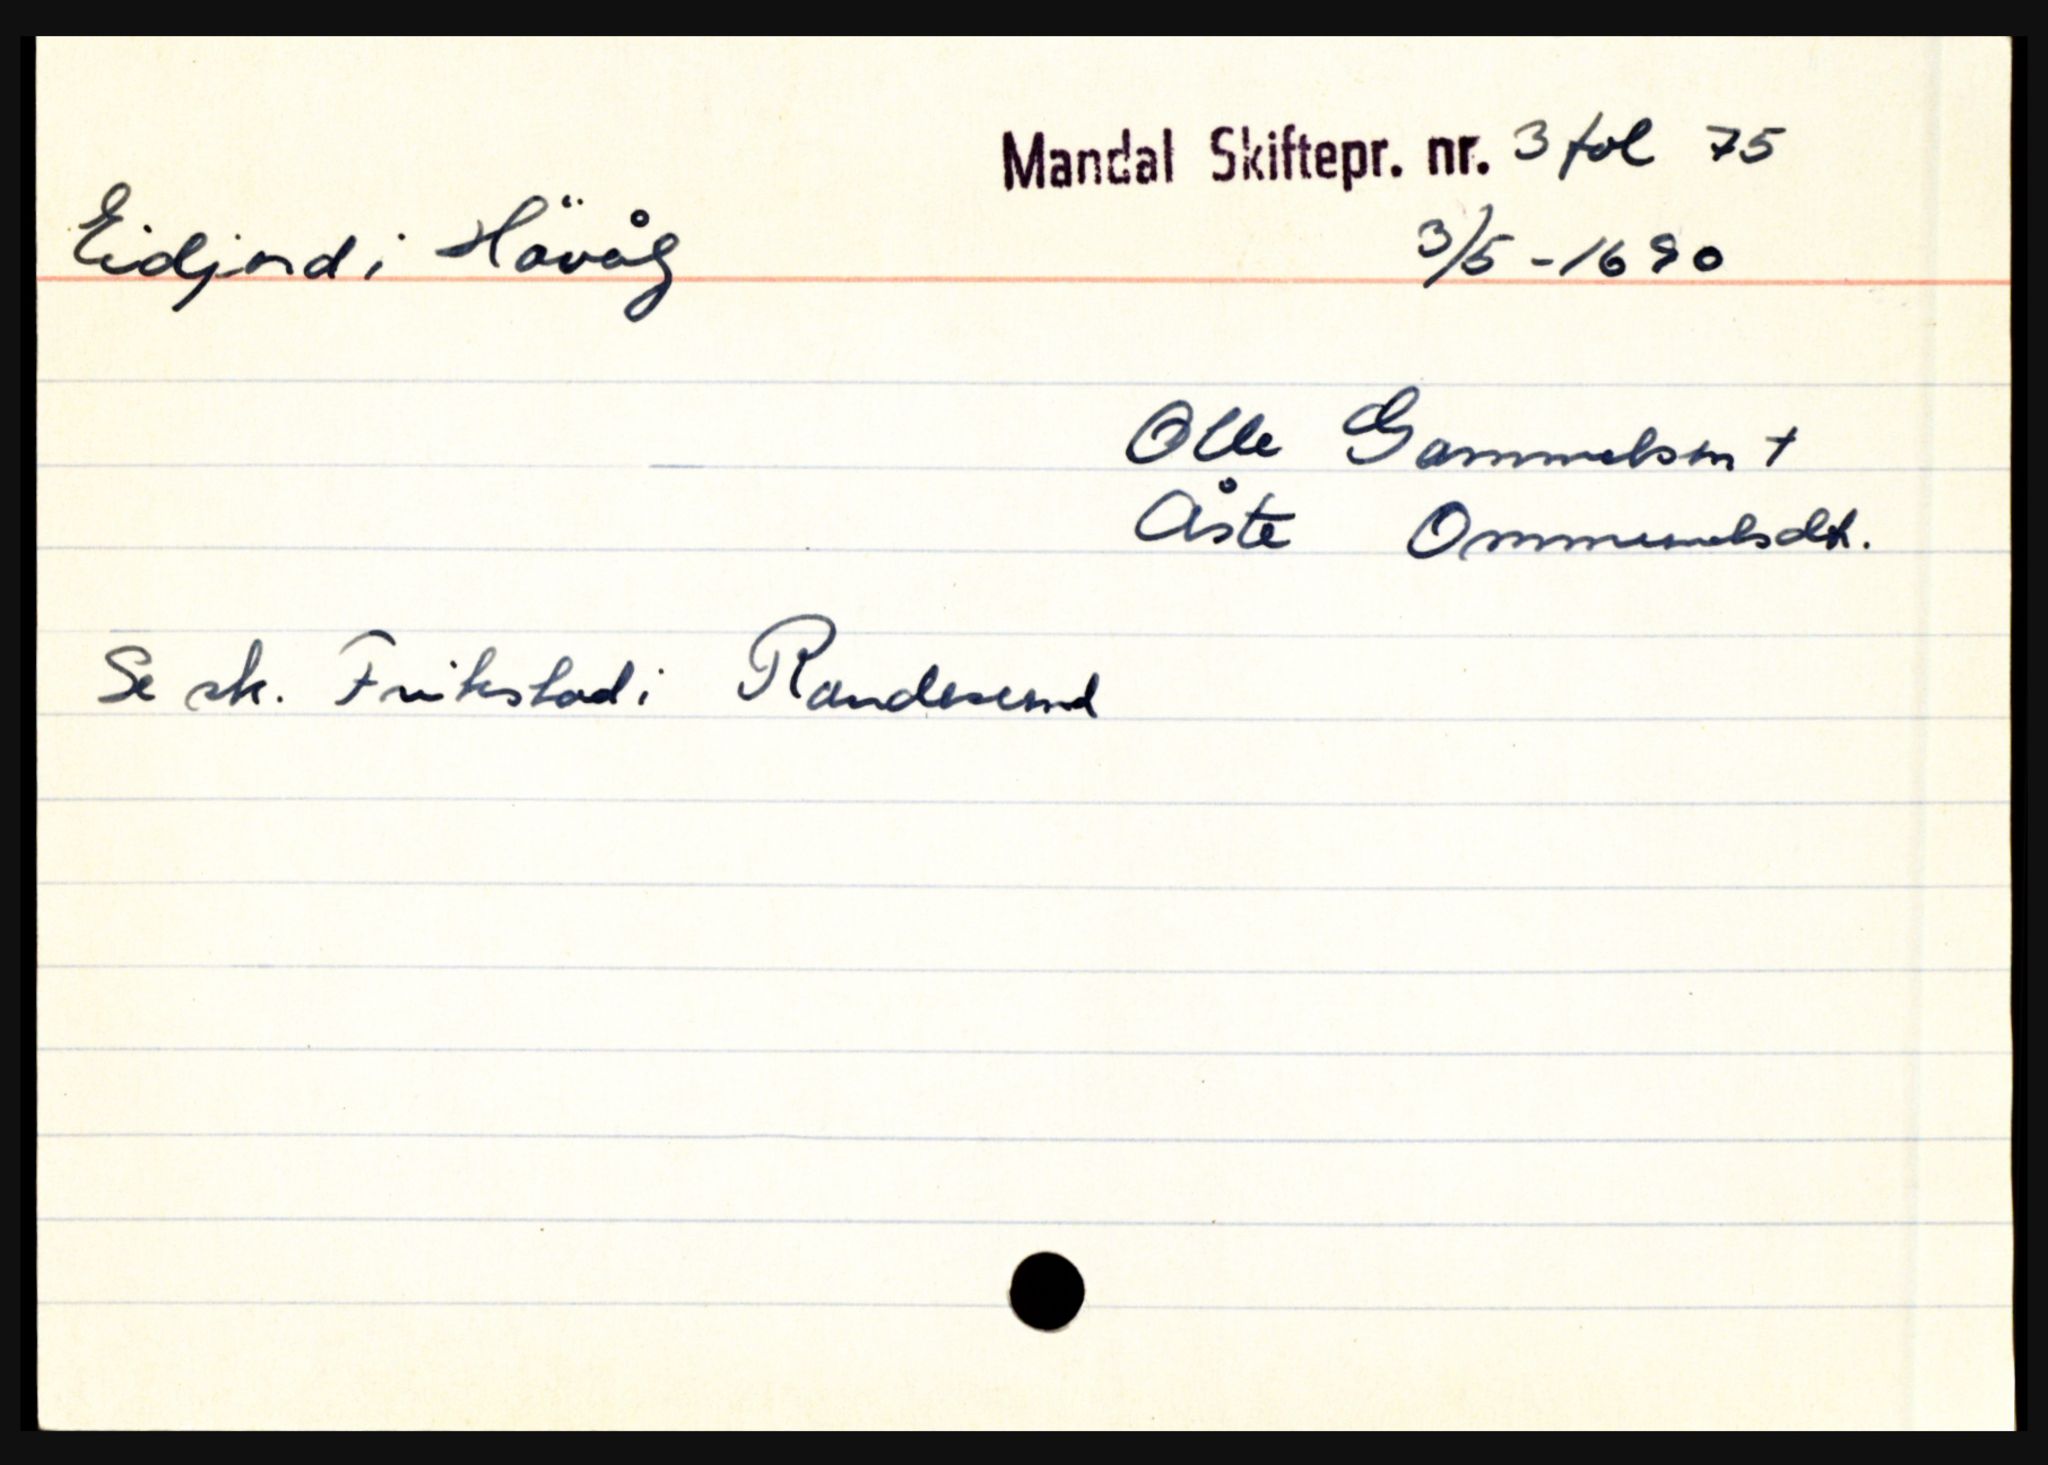 Mandal Skiftepr. nr. 3 fol 75
Eidjord i Høvåg 3/5 - 1690
Olle Gammelsen +
Åste Ommundsdt.
Se sk. Frikstad i Randesund